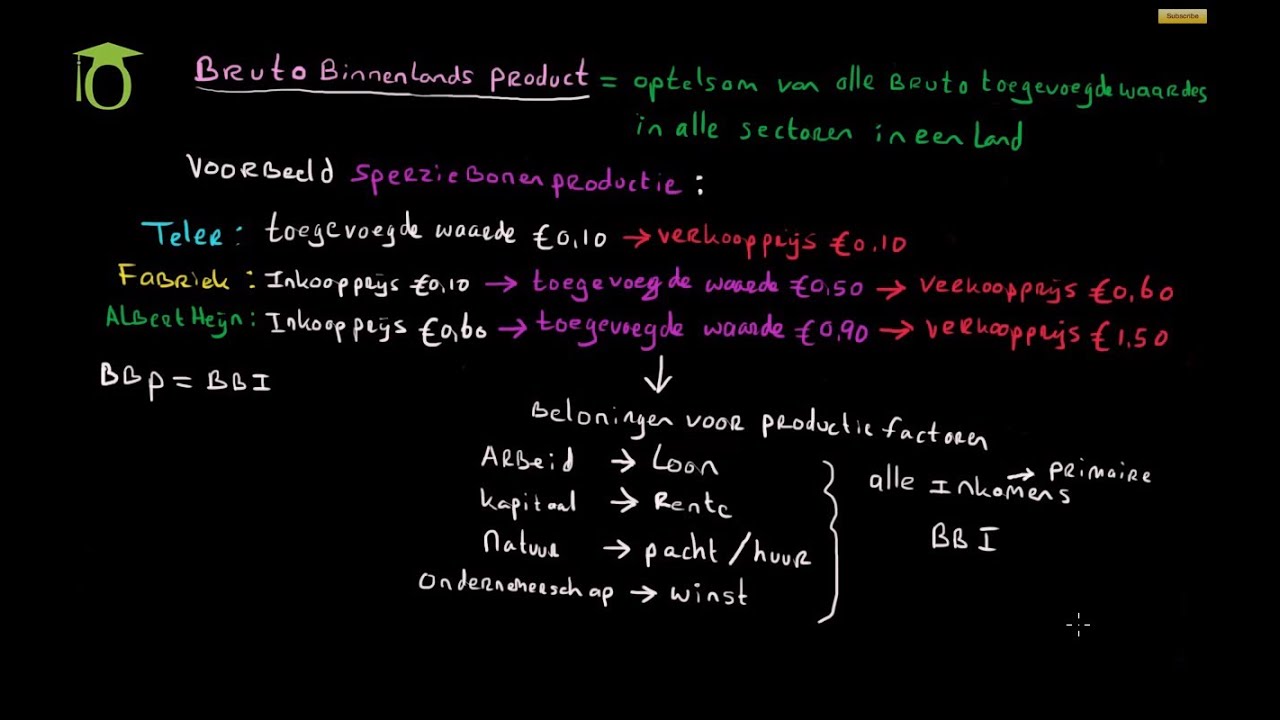 Subscribe
Bruto Binnenlands product = optelsom van alle Bruto toegevoegde waardes
in alle sectoren in een land
Voorbeeld sperziebonenproductie:
Teler: toegevoegde waarde €0,10 → verkoopprijs €0,10
Fabriek: Inkoopprijs €0,10 → toegevoegde waarde €0,50 → verkoopprijs €0,60
Albert Heijn: Inkoopprijs €0,60 → toegevoegde waarde €0,90 → verkoopprijs €1,50
BBp = BBI
Beloningen voor productiefactoren
Arbeid → Loon
kapitaal → Rente
Natuur → pacht/huur
ondernemerschap → winst
alle Inkomens → primaire
BBI